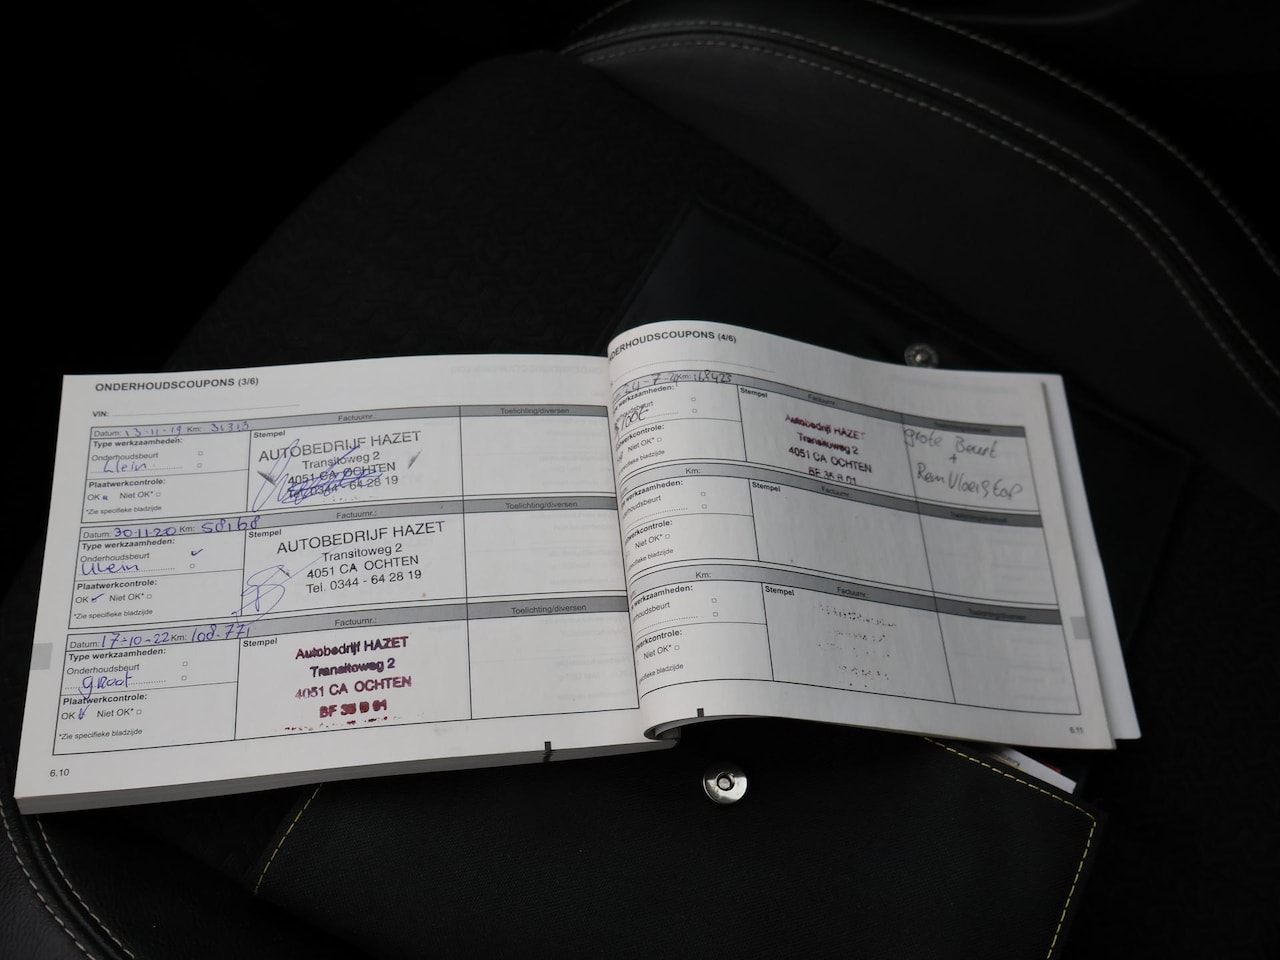 ONDERHOUDSCOUPONS (3/6)
VIN:
Factuurnr.
Toelichting/diversen
Datum: 13-11-19 Km: 31313
Type werkzaamheden:
Onderhoudsbeurt
klein
Plaatwerkcontrole:
OK Niet OK*
*Zie specifieke bladzijde
Stempel
AUTOBEDRIJF HAZET
Transitoweg 2
4051 CA OCHTEN
Tel. 0344 - 64 28 19
Factuurnr.:
Toelichting/diversen
Datum: 30-11-20 Km: 58168
Type werkzaamheden:
Onderhoudsbeurt
klein
Plaatwerkcontrole:
OK Niet OK*
*Zie specifieke bladzijde
Stempel
AUTOBEDRIJF HAZET
Transitoweg 2
4051 CA OCHTEN
Tel. 0344 - 64 28 19
Factuurnr.:
Toelichting/diversen
Datum: 17-10-22 Km: 108.771
Type werkzaamheden:
Onderhoudsbeurt
groot
Plaatwerkcontrole:
OK Niet OK*
*Zie specifieke bladzijde
Stempel
Autobedrijf HAZET
Transitoweg 2
4051 CA OCHTEN
6.10
ONDERHOUDSCOUPONS (4/6)
Km:
werkzaamheden:
Niet OK*
specifieke bladzijde
Stempel
Factuurnr.:
Autobedrijf HAZET
Transitoweg 2
4051 CA OCHTEN
grote Beurt
+
Remvloeistof
Km:
werkzaamheden:
Niet OK*
specifieke bladzijde
Stempel
Factuurnr.:
Toelichting/diversen
Km:
werkzaamheden:
Niet OK*
specifieke bladzijde
Stempel
Factuurnr.:
Toelichting/diversen
6.11